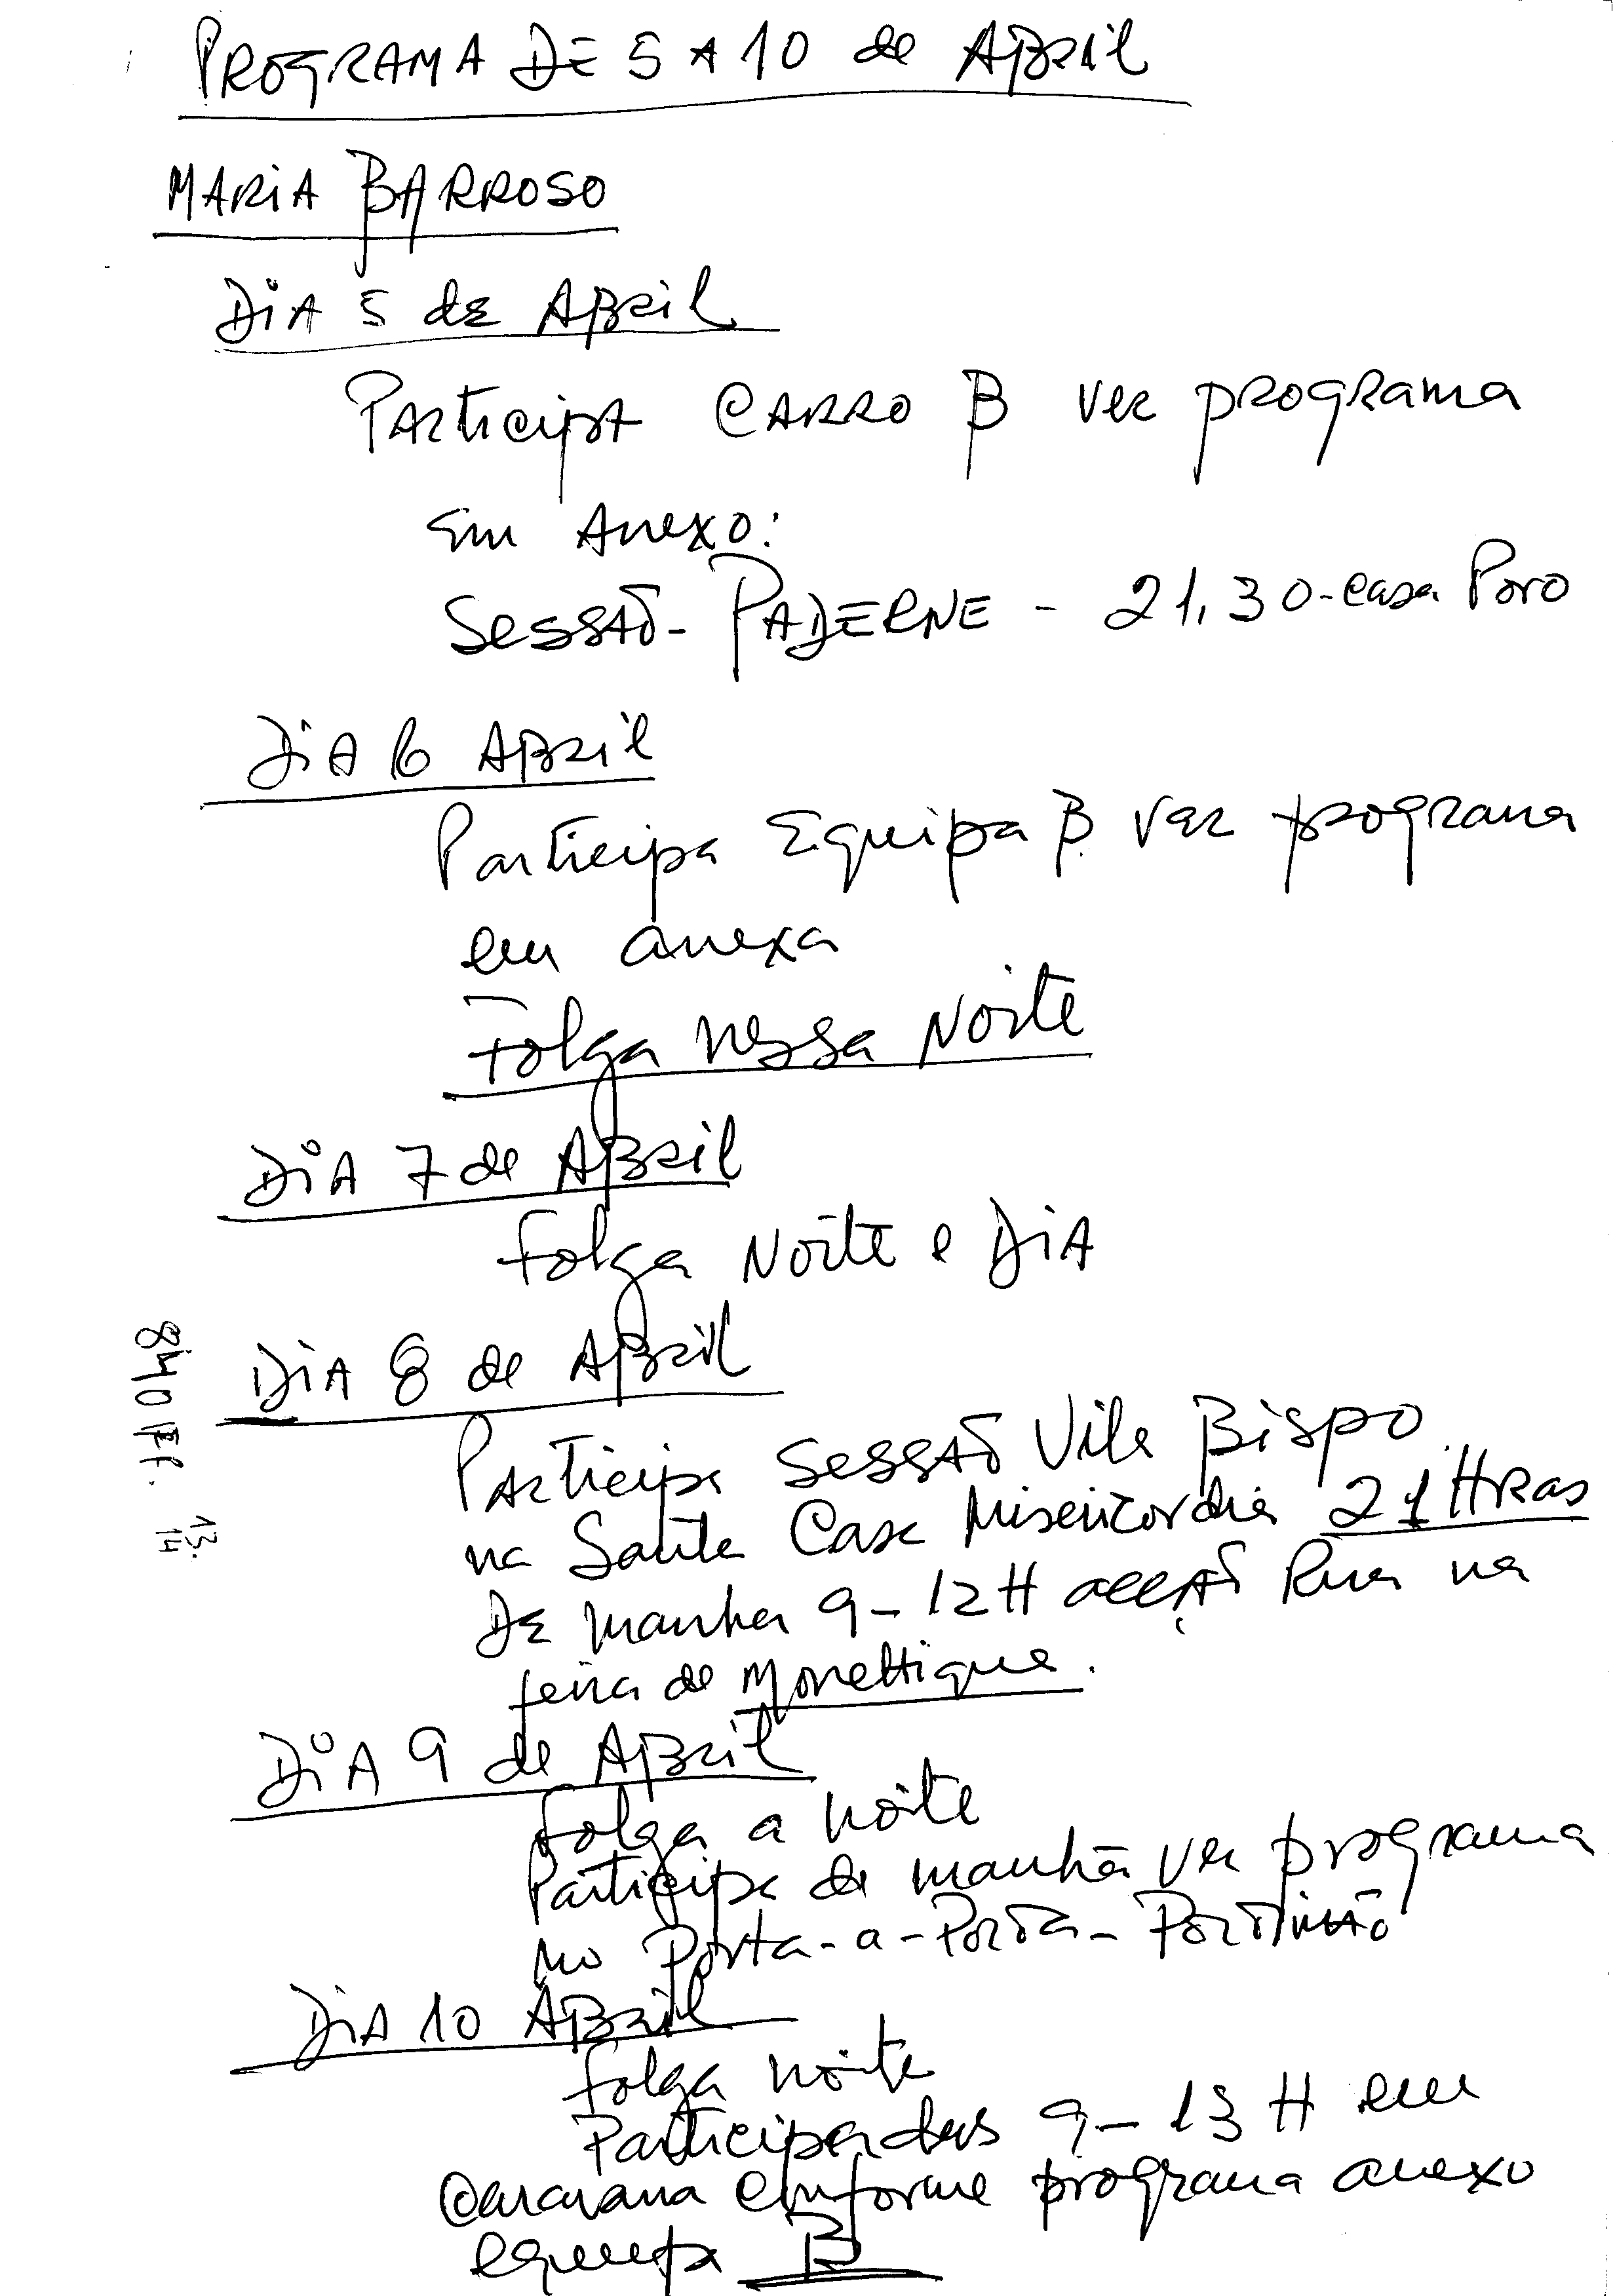 PROGRAMA DE 5 A 10 de ABRIL
MARIA BARROSO
DIA 5 de ABRIL
PARTICIPA CARRO B VER PROGRAMA
Em Anexo:
SESSÃO - PADERNE - 21,30 - casa Povo
DIA 6 ABRIL
Participa Equipa B ver programa
em anexa
Folga nessa Noite
DIA 7 de ABRIL
Folga Noite e DIA
DIA 8 de ABRIL
PARTICIPA SESSÃO Vila Bispo
na Santa Casa Misericordia 21 HRas
DE manha 9 - 12 H acção Rua na
feira de
DIA 9 de ABRIL
Folga a noite
Participa da manhã ver programa
no Porta-a-Porta - PORTIMÃO
DIA 10 ABRIL
Folga noite
Participa das 9 - 13 H em
Caravana conforme programa anexo
equipa B